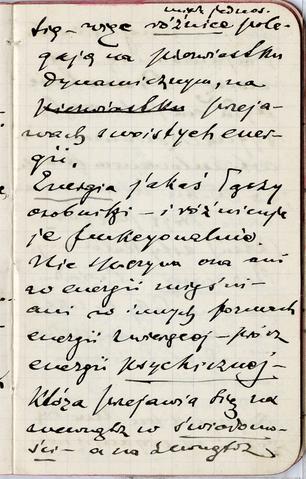 międz jednos.
się – więc różnice pole-
gają na pierwiastku
dynamicznym, na
pierwiastku przeja-
wach swoistych ener-
gii.
Energia jakaś łączy
osobniki – i różnicuje
je funkcyonalnie.
Nie spoczywa ona ani
w energii mięśni-
ani w innych formach
energii zwierzęcej – prócz
energii psychicznej –
która przejawia się na
wewnątrz w świadomo-
ści – a na zewnątrz